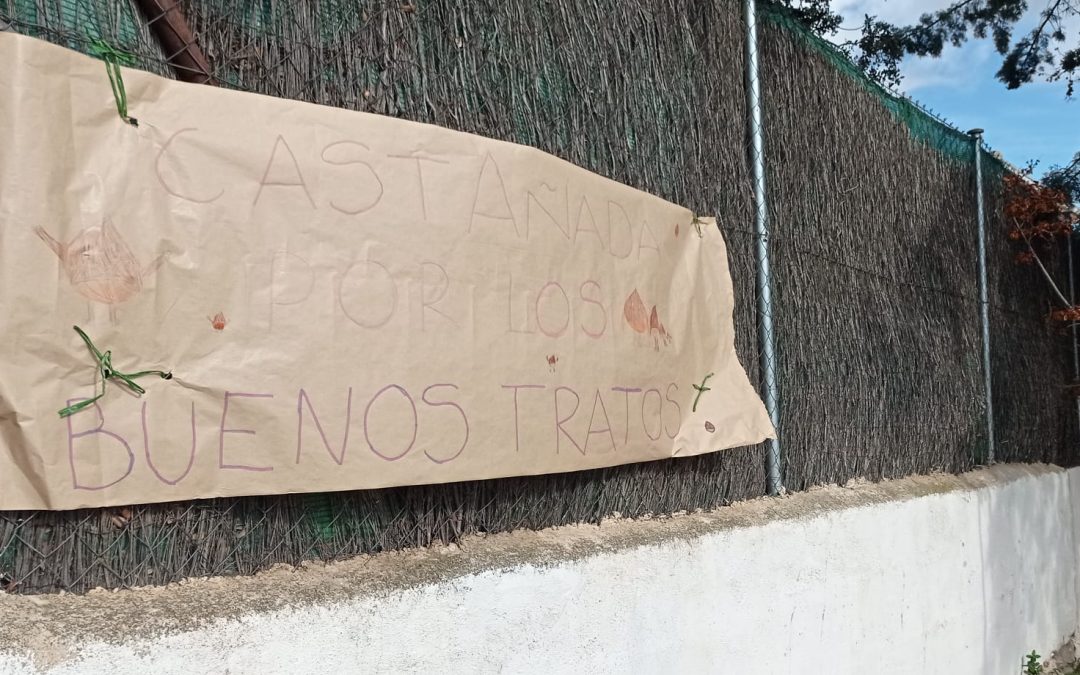 CASTAÑADA
POR LOS
BUENOS TRATOS